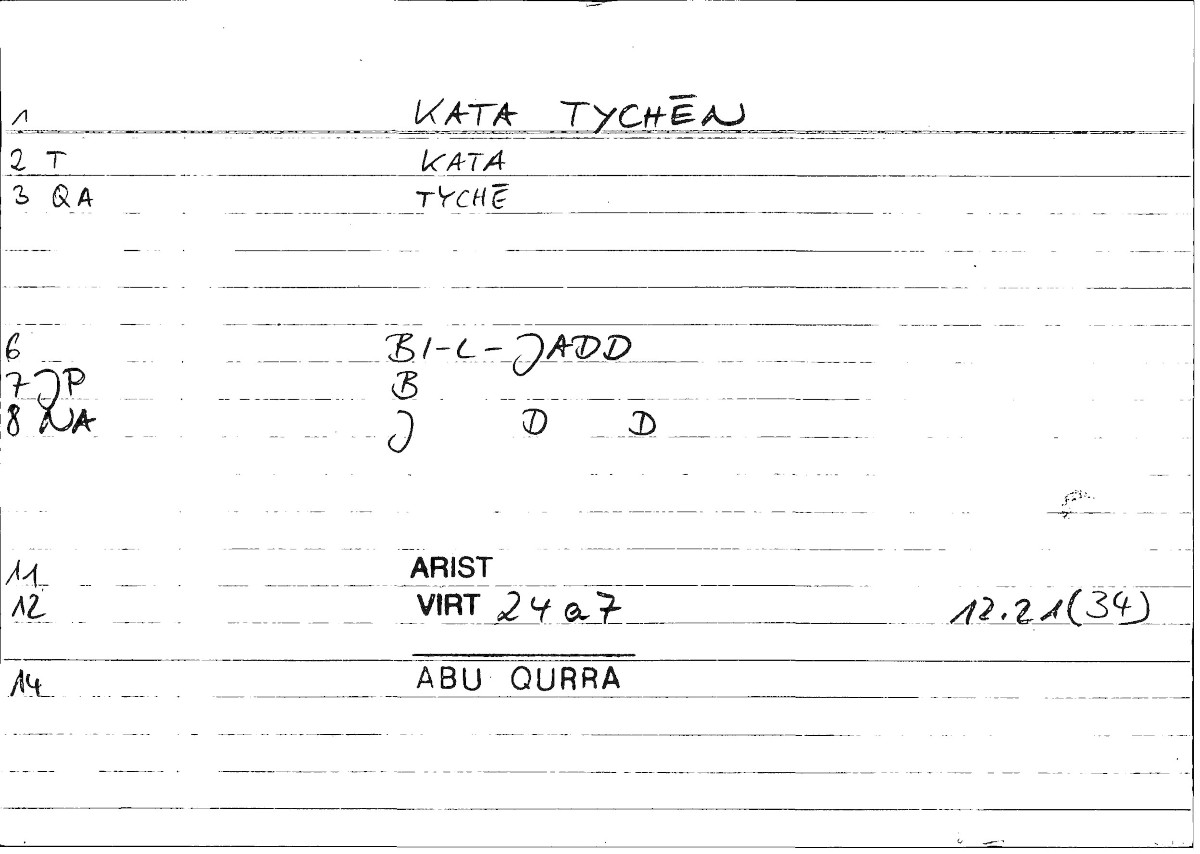 1 KATA TYCHĒN
2 T KATA
3 QA TYCHĒ
6 BI-L-JADD
7 JP B
8 NA J D D
11 ARIST
12 VIRT 24 a 7 12.21(34)
14 ABU QURRA